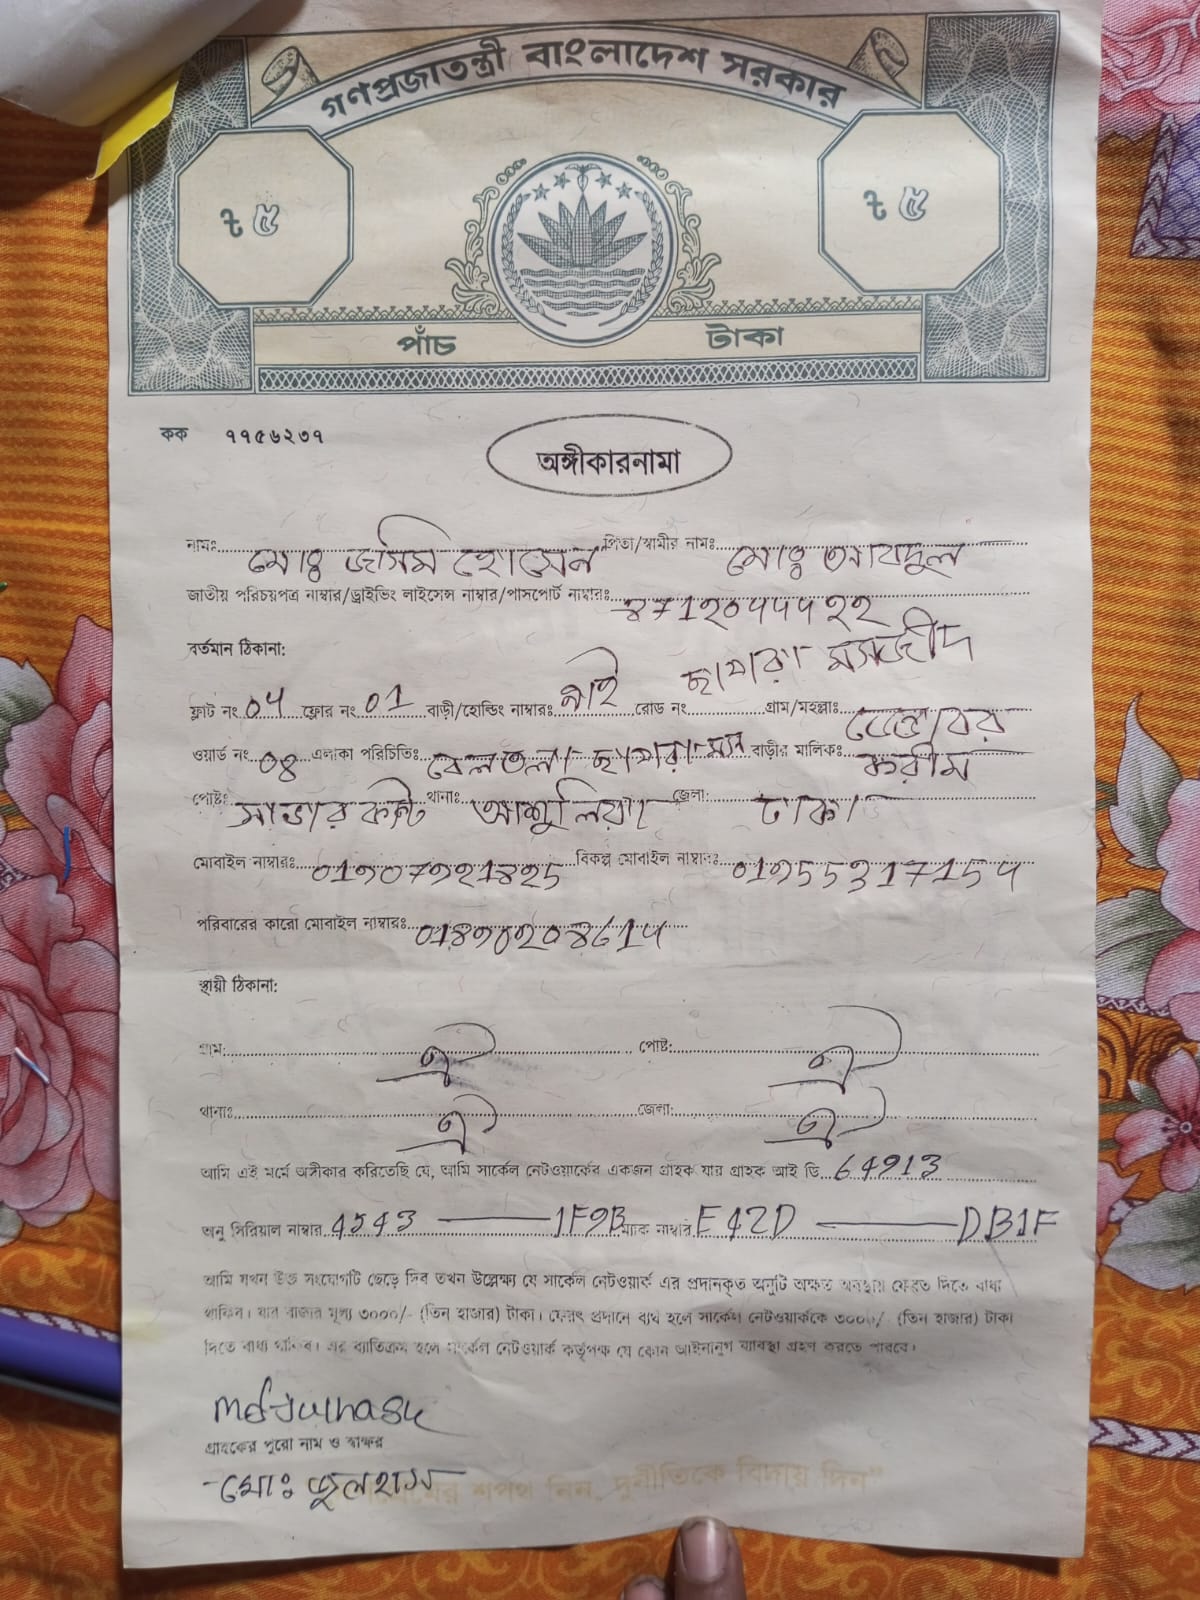 গণপ্রজাতন্ত্রী বাংলাদেশ সরকার
৳ ৫ ৳ ৫
পাঁচ টাকা
কক ৭৭৫৬২৩৭
অঙ্গীকারনামা
নামঃ মোঃ জসিম হোসেন পিতা/স্বামীর নামঃ মোঃ আবদুল
জাতীয় পরিচয়পত্র নাম্বার/ড্রাইভিং লাইসেন্স নাম্বার/পাসপোর্ট নাম্বারঃ
বর্তমান ঠিকানা: ছাপরা মসজীদ
ফ্লাট নং 04 ফ্লোর নং 01 বাড়ী/হোল্ডিং নাম্বারঃ নাই রোড নং গ্রাম/মহল্লাঃ
ওয়ার্ড নং 08 এলাকা পরিচিতিঃ বেলতলা ছাপরা মস বাড়ীর মালিকঃ করীম
পোষ্টঃ সাভার কেন্ট থানাঃ আশুলিয়া জেলা: ঢাকা
মোবাইল নাম্বারঃ বিকল্প মোবাইল নাম্বারঃ
পরিবারের কারো মোবাইল নাম্বারঃ
স্থায়ী ঠিকানা:
গ্রাম: ঐ পোষ্ট: ঐ
থানাঃ ঐ জেলা: ঐ
আমি এই মর্মে অঙ্গীকার করিতেছি যে, আমি সার্কেল নেটওয়ার্কের একজন গ্রাহক যার গ্রাহক আই ডি 64913
অনু সিরিয়াল নাম্বার 4543 1F9B ম্যাক নাম্বার E42D DB1F
আমি যখন উক্ত সংযোগটি ছেড়ে দিব তখন উল্লেক্ষ্য যে সার্কেল নেটওয়ার্ক এর প্রদানকৃত অনুটি অক্ষত অবস্থায় ফেরত দিতে বাধ্য
থাকিব। যার বাজার মূল্য ৩০০০/- (তিন হাজার) টাকা। ফেরৎ প্রদানে ব্যর্থ হলে সার্কেল নেটওয়ার্ককে ৩০০০/- (তিন হাজার) টাকা
দিতে বাধ্য থাকিব। এর ব্যতিক্রম হলে সার্কেল নেটওয়ার্ক কর্তৃপক্ষ যে কোন আইনানুগ ব্যবস্থা গ্রহণ করতে পারবে।
গ্রাহকের পুরো নাম ও স্বাক্ষর
মোঃ জুলহাস
শপথ নিন, দুর্নীতিকে বিদায় দিন"